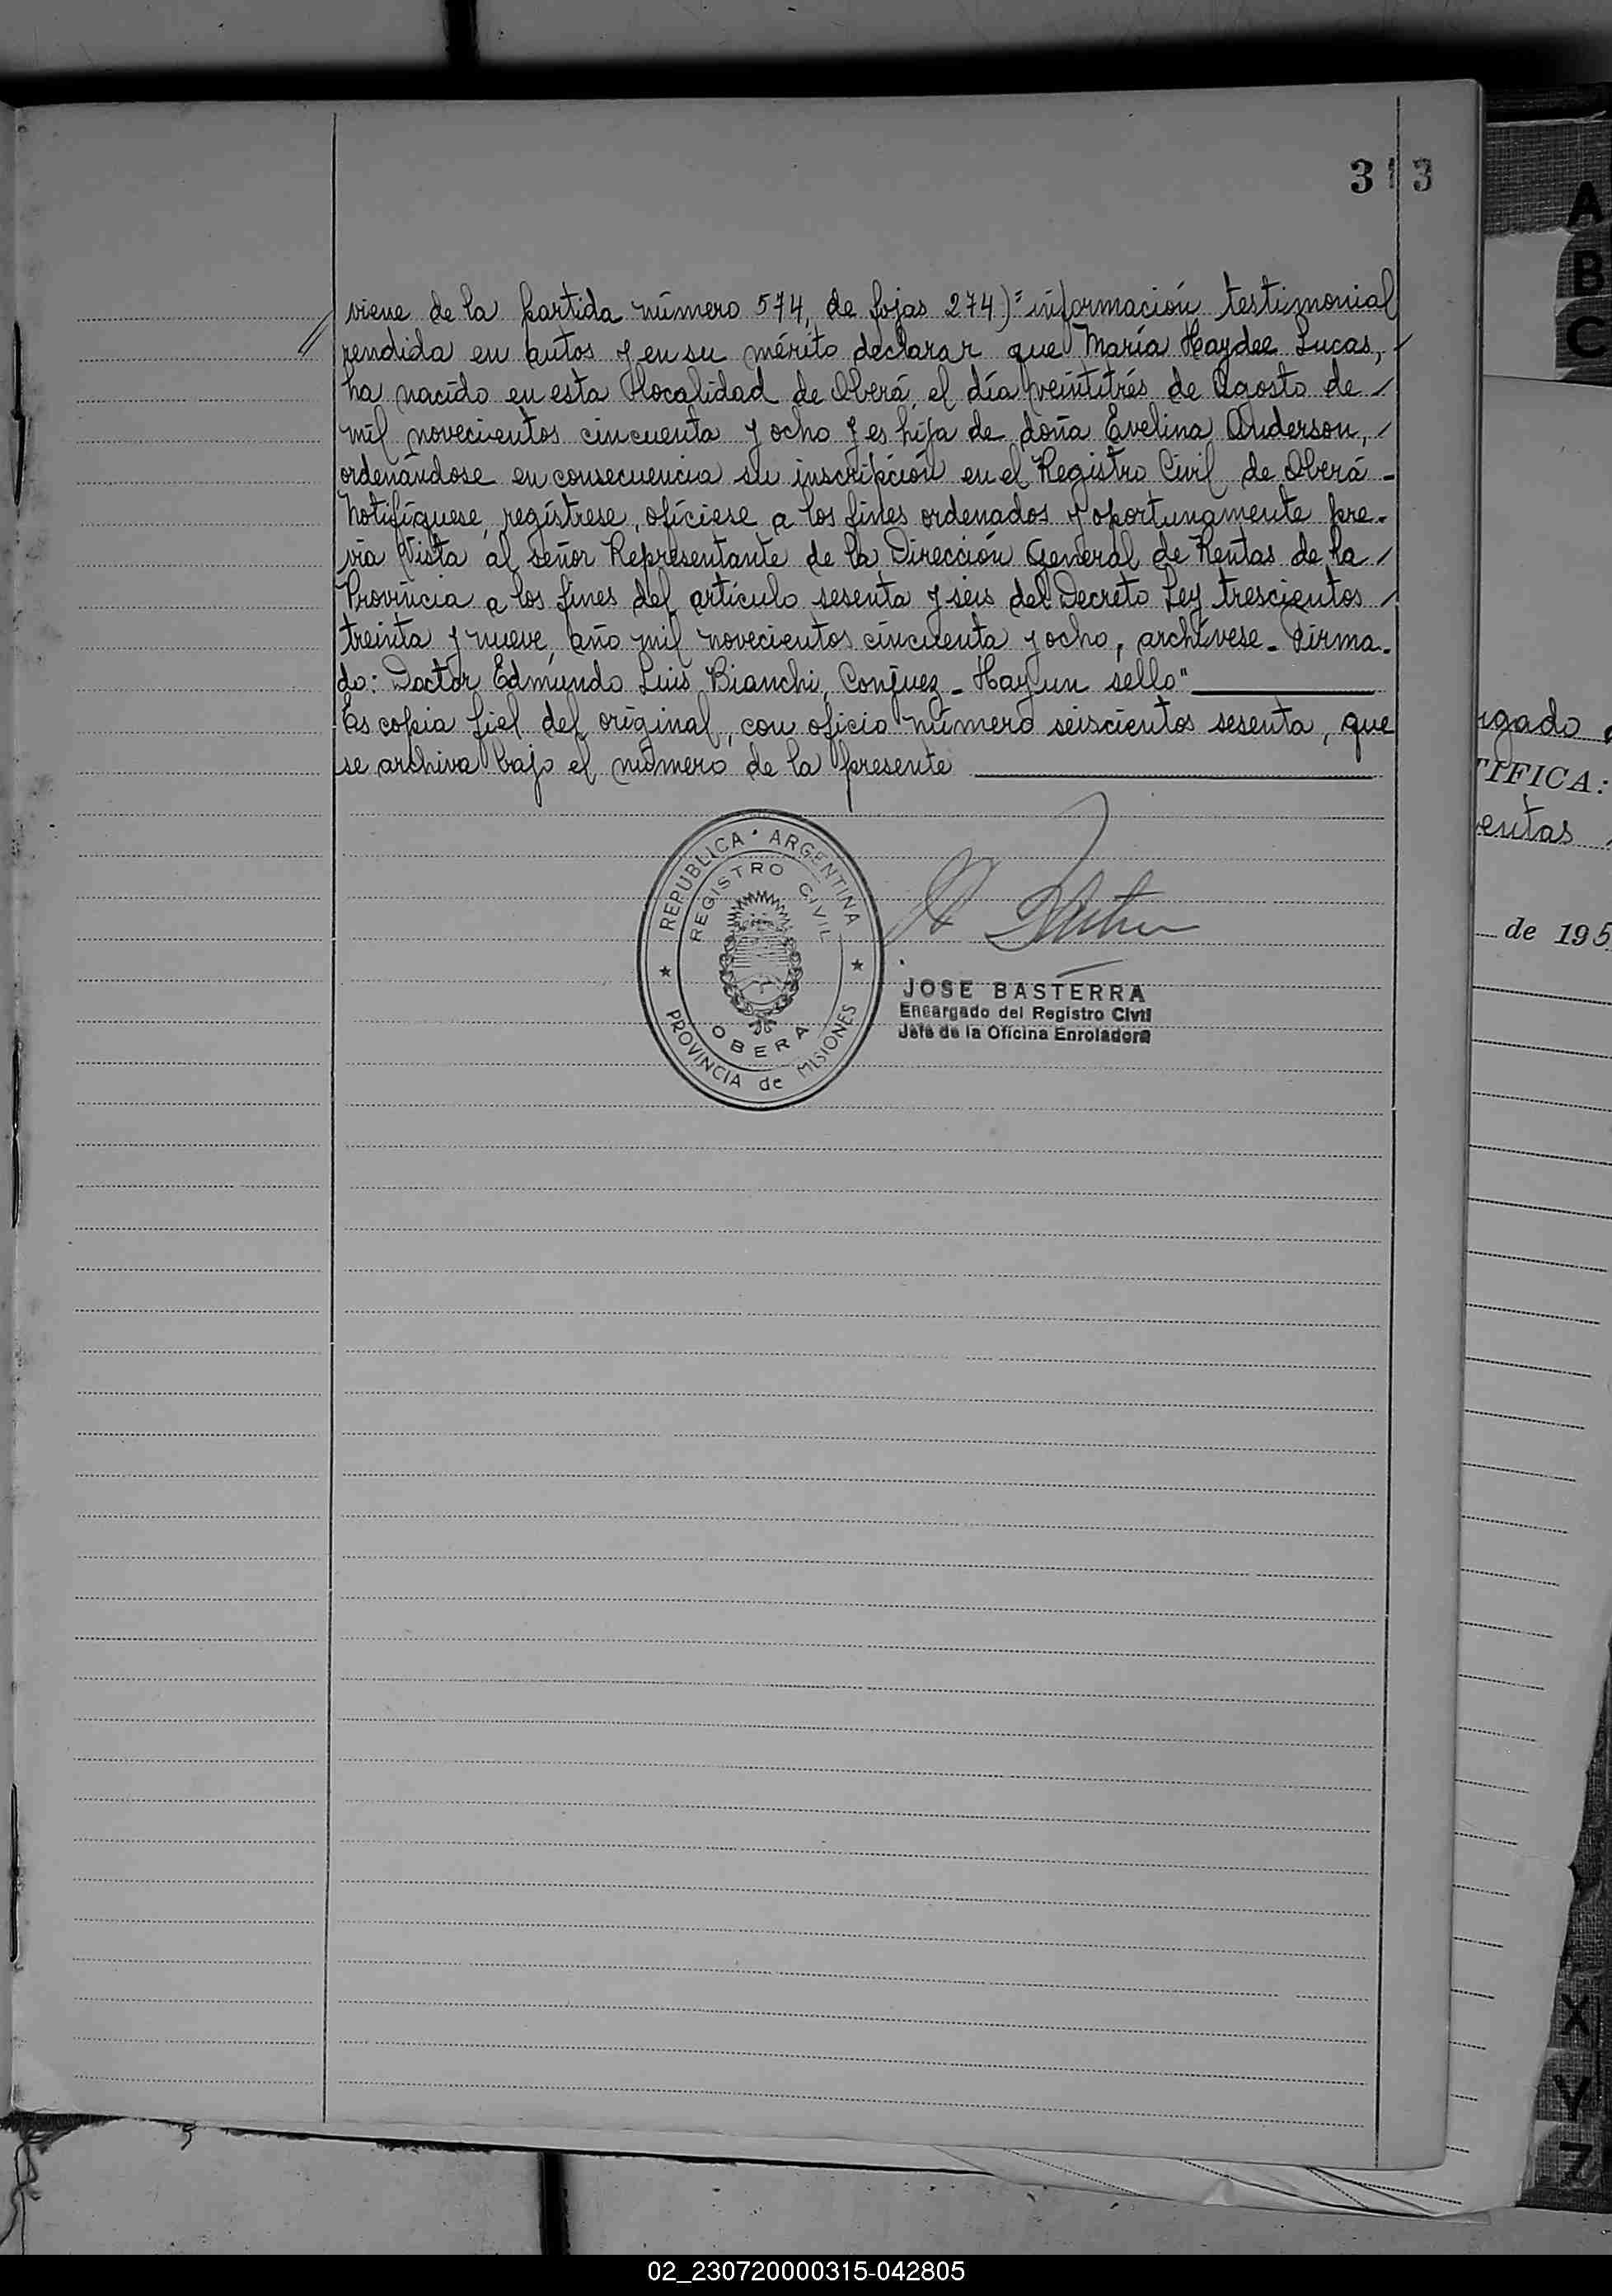 313
viene de la partida número 574, de fojas 274)= información testimonial
// rendida en autos y en su mérito declarar que María Haydee Lucas, -
ha nacido en esta localidad de Oberá, el día veintitrés de Agosto de /
mil novecientos cincuenta y ocho y es hija de doña Evelina Anderson, /
ordenándose en consecuencia su inscripción en el Registro Civil de Oberá -
Notifíquese, regístrese, ofíciese a los fines ordenados y oportunamente pre-
via Vista al señor Representante de la Dirección General de Rentas de la /
Provincia a los fines del artículo sesenta y seis del Decreto Ley trescientos /
treinta y nueve, año mil novecientos cincuenta y ocho, archívese - Firma-
do: Doctor Edmundo Luis Bianchi, Conjuez - Hay un sello"
Es copia fiel del original, con oficio número seiscientos sesenta, que
se archiva bajo el número de la presente
REPUBLICA ARGENTINA
REGISTRO CIVIL
OBERA
PROVINCIA de MISIONES
JOSE BASTERRA
Encargado del Registro Civil
Jefe de la Oficina Enroladora
rgado
TIFICA:
entas
de 195
A
B
C
X
Y
Z
02_230720000315-042805